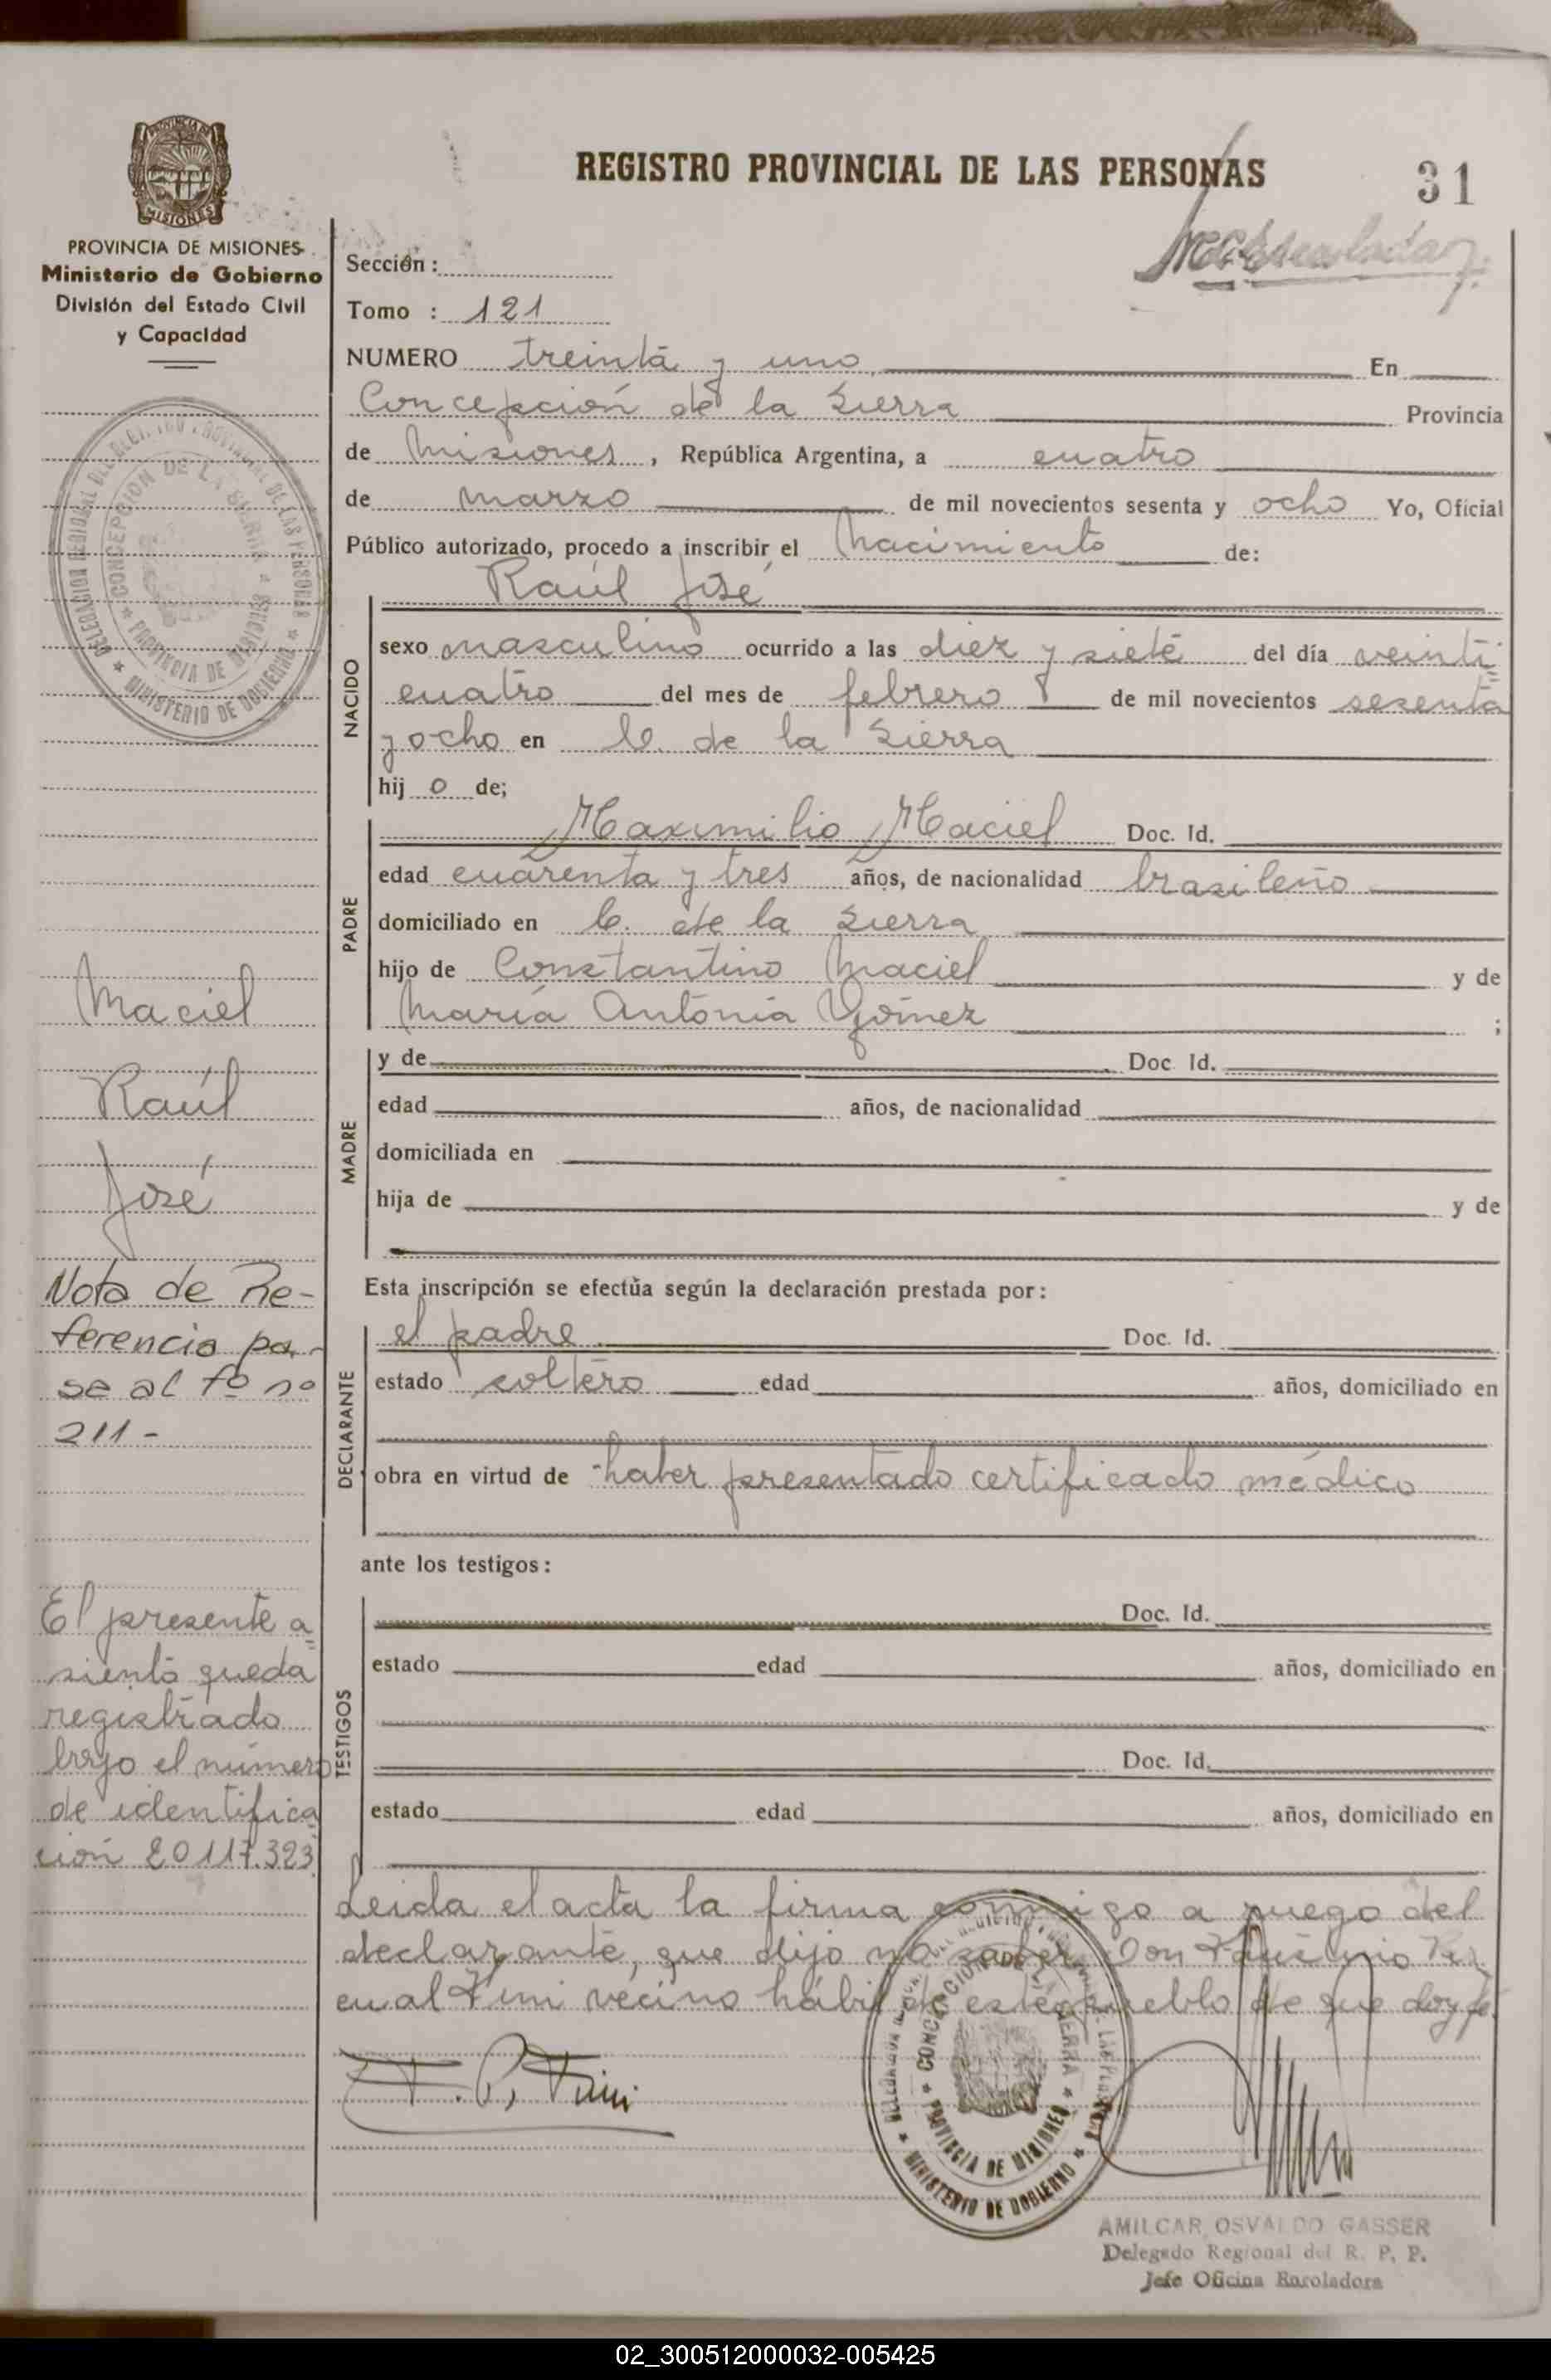 REGISTRO PROVINCIAL DE LAS PERSONAS
31
PROVINCIA DE
MISIONES
PROVINCIA DE MISIONES
Ministerio de Gobierno
División del Estado Civil
y Capacidad
Sección :
Tomo : 121
NUMERO treinta y uno En
Concepción de la Sierra Provincia
de Misiones, República Argentina, a cuatro
de marzo de mil novecientos sesenta y ocho Yo, Oficial
Público autorizado, procedo a inscribir el Nacimiento de:
Raúl José
NACIDO
sexo masculino ocurrido a las diez y siete del día veinti
cuatro del mes de febrero de mil novecientos sesenta
y ocho en C. de la Sierra
hij o de;
PADRE
Maximilio Maciel Doc. Id.
edad cuarenta y tres años, de nacionalidad brasileño
domiciliado en C. de la Sierra
hijo de Constantino Maciel y de
María Antonia Gómez ;
MADRE
y de Doc. Id.
edad años, de nacionalidad
domiciliada en
hija de y de
Esta inscripción se efectúa según la declaración prestada por:
DECLARANTE
el padre Doc. Id.
estado soltero edad años, domiciliado en
obra en virtud de haber presentado certificado médico
ante los testigos:
TESTIGOS
Doc. Id.
estado edad años, domiciliado en
Doc. Id.
estado edad años, domiciliado en
Leida el acta la firma conmigo a ruego del
declarante, que dijo no saber, Don Faustino Pas
cual Fini vecino hábil de este pueblo de que doy fé.
F. P. Fini
AMILCAR OSVALDO GASSER
Delegado Regional del R. P. P.
Jefe Oficina Enroladora
DELEGACION REGIONAL DEL REGISTRO PROVINCIAL DE LAS PERSONAS
CONCEPCION DE LA SIERRA
PROVINCIA DE MISIONES
MINISTERIO DE GOBIERNO
Maciel
Raúl
José
Nota de Re-
ferencia pa-
se al fº nº
211-
El presente a
siento queda
registrado
bajo el número
de identifica
ción 20.117.323
CONCEPCION DE LA SIERRA
PROVINCIA DE MISIONES
MINISTERIO DE GOBIERNO
02_300512000032-005425